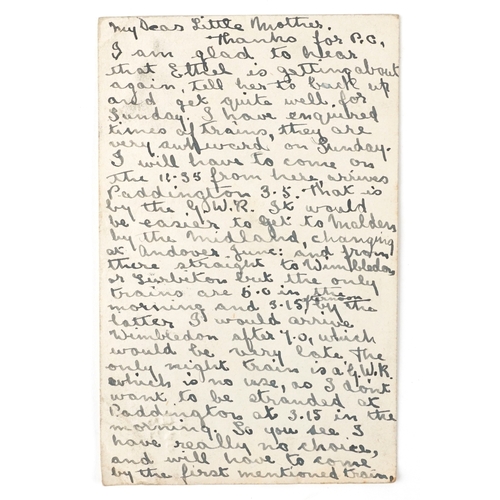 My Dear Little Mother.
Thanks for P.C,
I am glad to hear
that Ethel is getting about
again, tell her to buck up
and get quite well for
Sunday. I have enquired
times of trains, they are
very awkward on Sunday.
I will have to come on
the 11-35 from here arives
Paddington 3-5. That is
by the G.W.R. It would
be easier to get to Malden
by the Midland, changing
at Andover Junc: and from
there straight to Wimbledon
or Surbiton but the only
trains are 5.0 in the
morning and 3-15 by the
latter I would arrive
Wimbledon after 7.0, which
would be very late. The
only night train is a G.W.R.
which is no use, as I don't
want to be stranded at
Paddington at 3.15 in the
morning. So you see I
have really no choice,
and will have to come
by the first mentioned train,